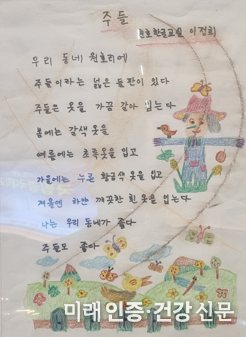 주들
원호한글교실 이정희
우리 동네 원호리에
주들이라는 넓은 들판이 있다
주들은 옷을 가끔 갈아 입는다
봄에는 갈색 옷을
여름에는 초록옷을 입고
가을에는 누른 황금색 옷을 입고
겨울엔 하얀 깨끗한 흰 옷을 입는다
나는 우리 동네가 좋다
주들도 좋아
미래인증·건강신문